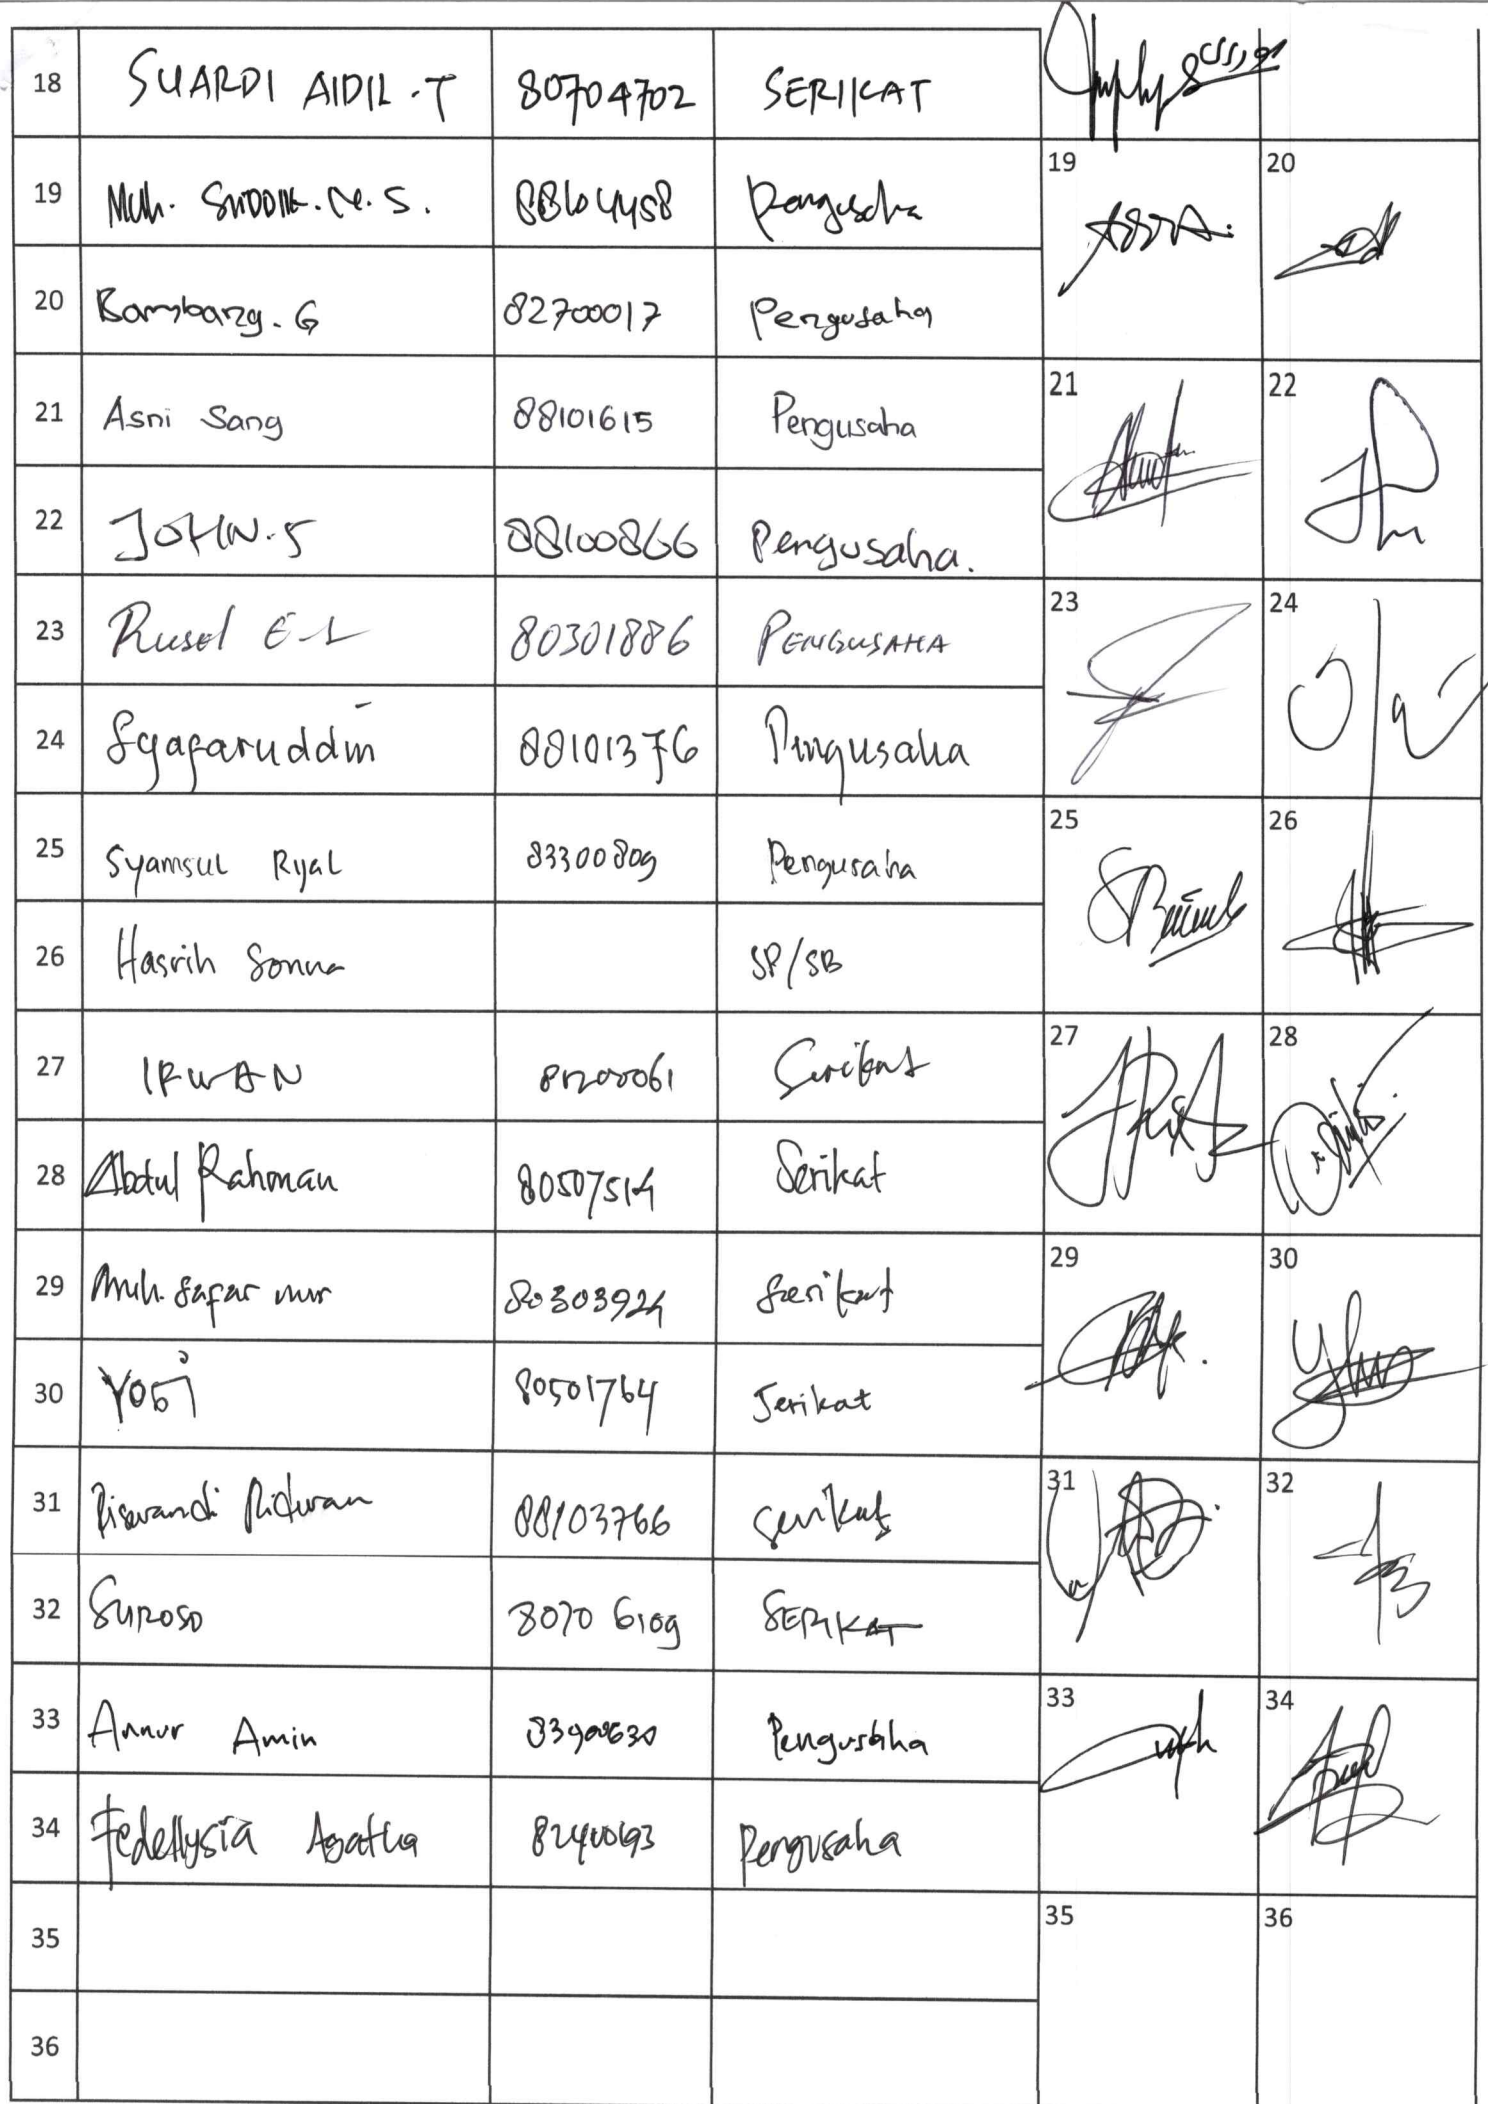 18 SUARDI AIDIL.T 80704702 SERIKAT
19 Muh. SIDDIK.M.S. 88104458 Pengusaha 19 20
20 Bambang. G 82700017 Pengusaha
21 Asni Sang 88101615 Pengusaha 21 22
22 JOHN.S 88100866 Pengusaha.
23 Rusel E-L 80301886 PENGUSAHA 23 24
24 Syafaruddin 88101376 Pengusaha
25 Syamsul Ryal 83300809 Pengusaha 25 26
26 Hasrih Sonna SP/SB
27 IRWAN 81200061 Serikat 27 28
28 Abdul Rahman 80507514 Serikat
29 Muh. Safar nur 80303924 Serikat 29 30
30 YOBI 80501764 Serikat
31 Riswandi Ridwan 88103766 Serikat 31 32
32 SUROSO 8070 6109 SERIKAT
33 Annur Amin 83900630 Pengusaha 33 34
34 Fedellysia Agatha 82400693 Pengusaha
35 35 36
36